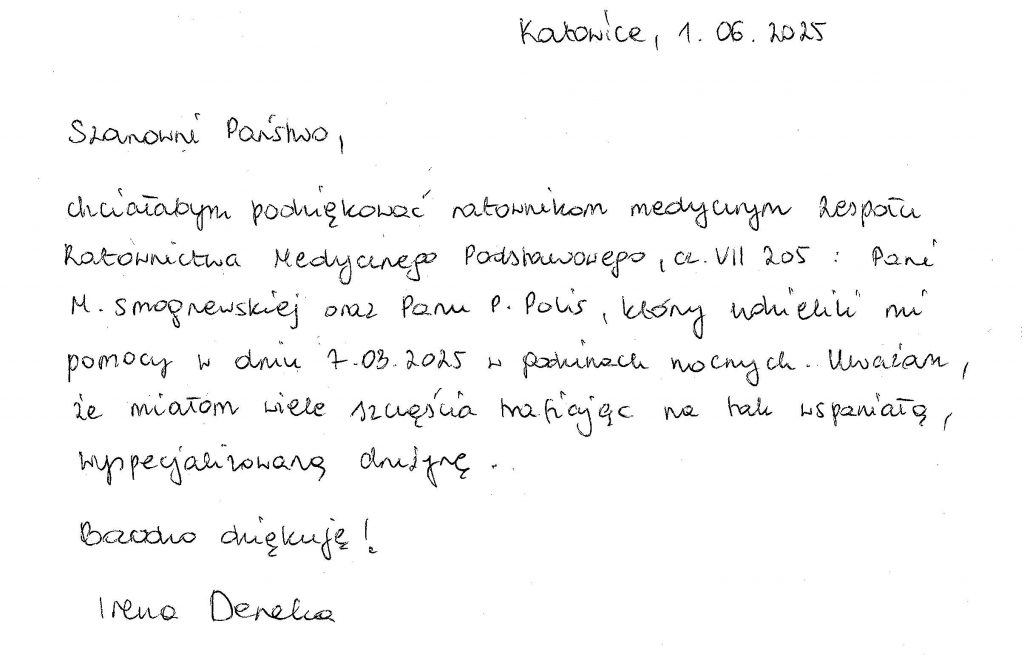 Katowice, 1.06.2025
Szanowni Państwo,
chciałabym podziękować ratownikom medycznym Zespołu
Ratownictwa Medycznego Podstawowego, cz. VII 205 : Pani
M. Smogrzewskiej oraz Panu P. Polis, który udzielili mi
pomocy w dniu 7.03.2025 w godzinach nocnych. Uważam,
że miałam wiele szczęścia trafiając na tak wspaniałą,
wyspecjalizowaną drużynę.
Bardzo dziękuję!
Irena